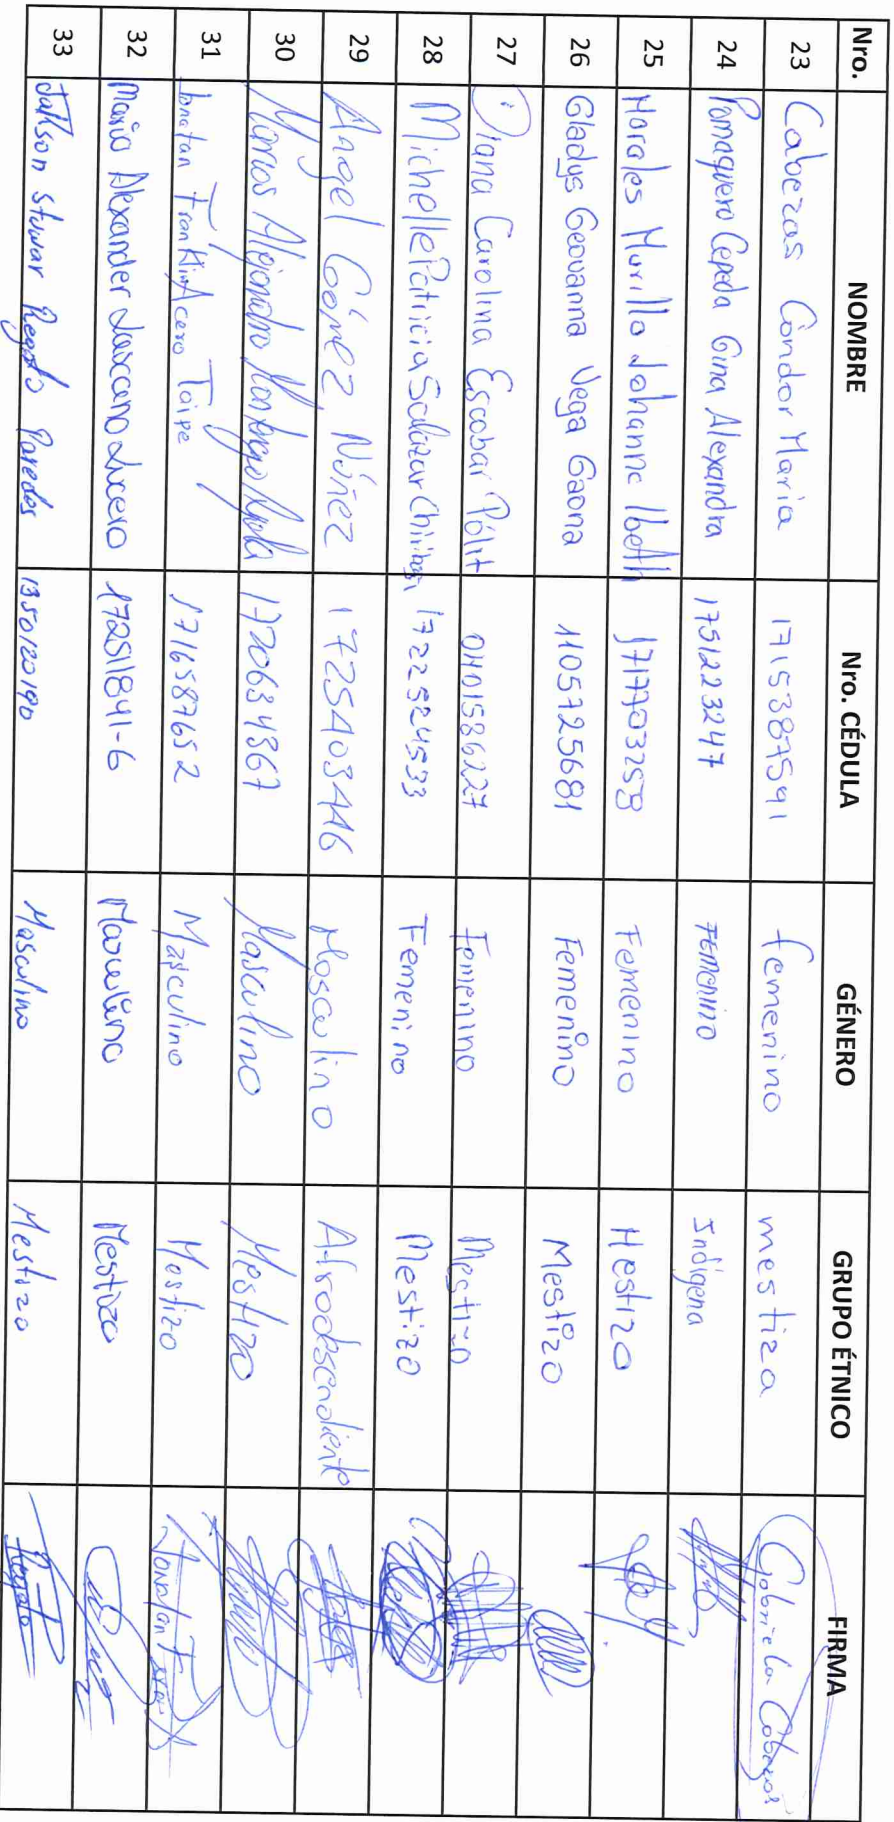 Nro. NOMBRE Nro. CÉDULA GÉNERO GRUPO ÉTNICO FIRMA
23 Cabezas Cóndor Maria 1715387591 femenino mestiza Gabriela Cabezas
24 Pomaquero Cepeda Gina Alexandra 1751223247 Femenino Indígena
25 Morales Murillo Johanna Ibeth 1717703258 Femenino Mestizo
26 Gladys Geovanna Vega Gaona 1105725681 Femenino Mestizo
27 Diana Carolina Escobar Pólit 0401586227 Femenino Mestizo
28 Michelle Patricia Salazar Chiriboga 1722524533 Femenino Mestizo
29 Angel Gómez Núñez 1725403446 Masculino Afrodescendiente
30 Marcos Alejandro 1720634367 Masculino Mestizo
31 Jonatan Franklin Acero Taipe 1716587652 Masculino Mestizo Jonatan
32 Mario Alexander Lascano Lucero 172511841-6 Masculino Mestizo
33 Jakson Stuwar Regato Paredes 1350120190 Masculino Mestizo Regato